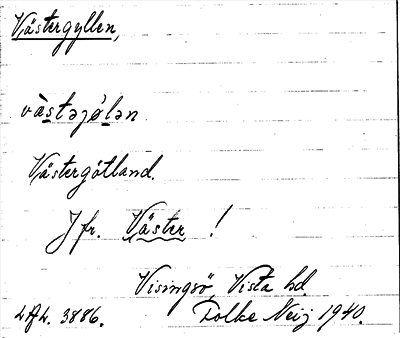 Västergyllen,
västəjø̀lən
Västergötland.
Jfr. Väster !
Visingsö, Vista hd
LAL. 3886. Folke Neij 1940.